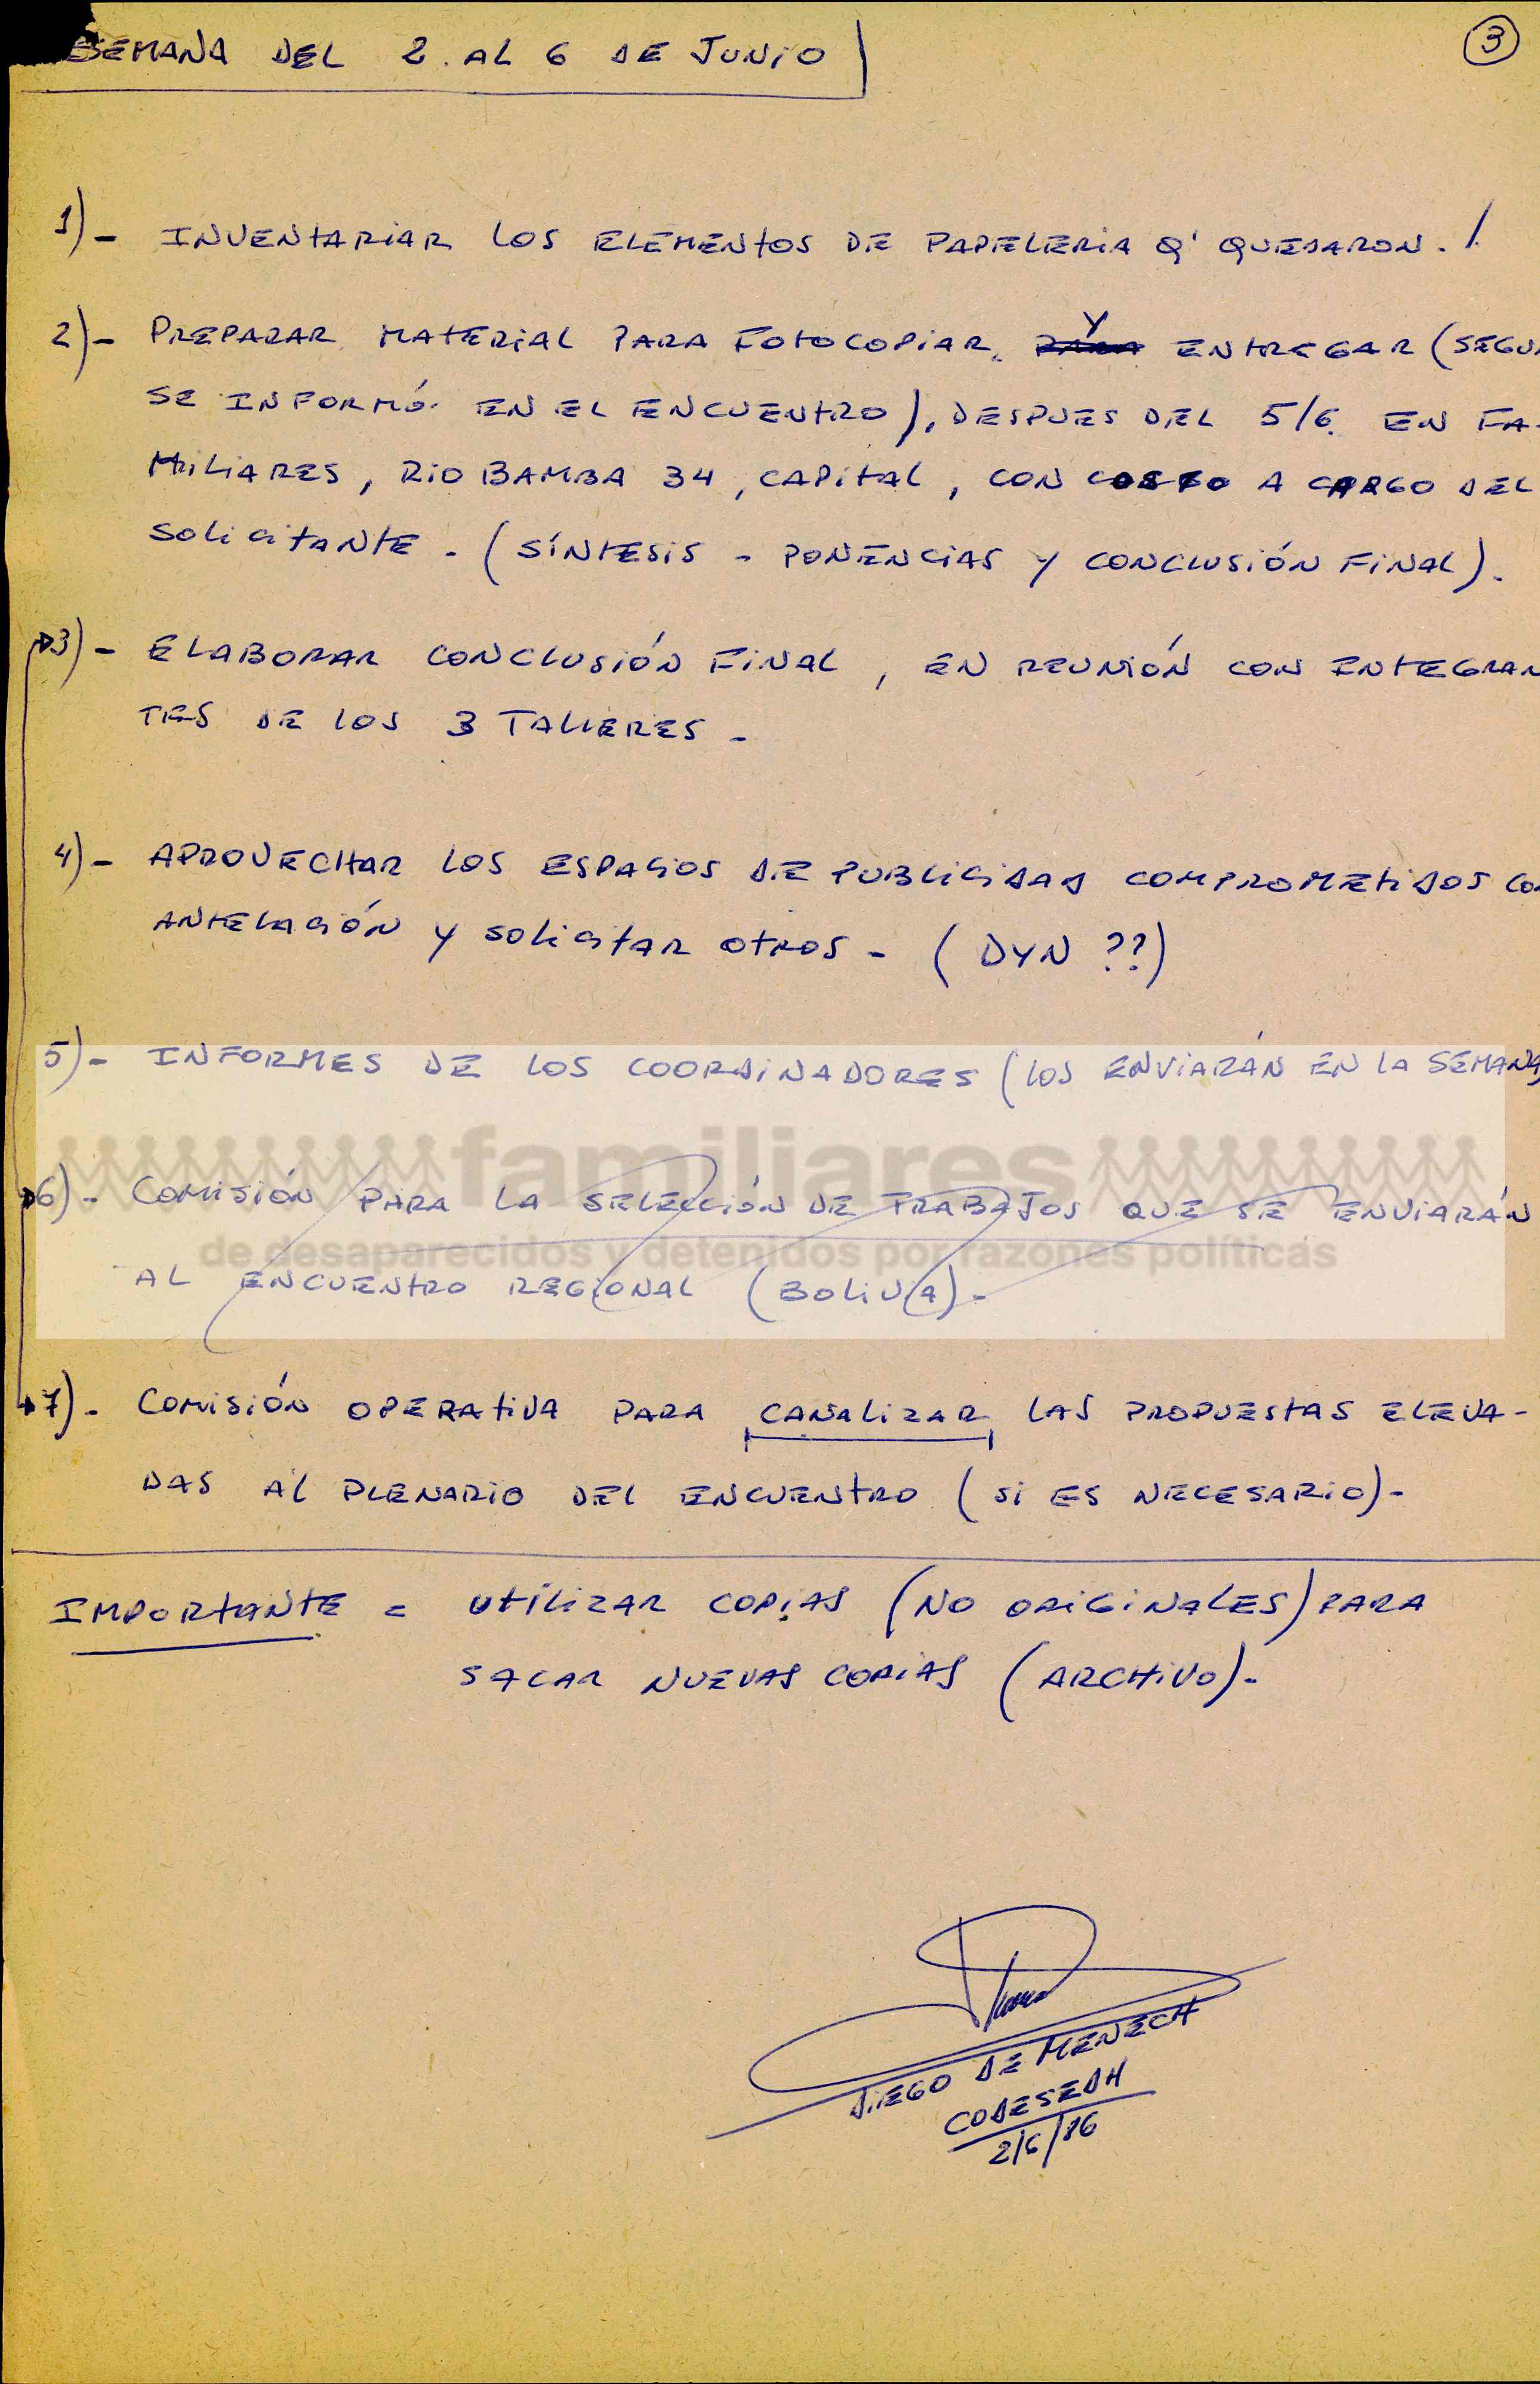 SEMANA DEL 2 AL 6 DE JUNIO
3
1)- INVENTARIAR LOS ELEMENTOS DE PAPELERIA Q' QUEDARON. /.
2)- PREPARAR MATERIAL PARA FOTOCOPIAR Y ENTREGAR (SEGUN
SE INFORMÓ EN EL ENCUENTRO), DESPUES DEL 5/6. EN FA-
MILIARES, RIO BAMBA 34, CAPITAL, CON COSTO A CARGO DEL
SOLICITANTE - (SÍNTESIS - PONENCIAS Y CONCLUSIÓN FINAL).
3)- ELABORAR CONCLUSIÓN FINAL, EN REUNIÓN CON INTEGRAN
TES DE LOS 3 TALLERES -
4)- APROVECHAR LOS ESPACIOS DE PUBLICIDAD COMPROMETIDOS CON
ANTELACIÓN Y SOLICITAR OTROS - (DYN ??)
5)- INFORMES DE LOS COORDINADORES (LOS ENVIARÁN EN LA SEMANA)
familiares
6)- COMISIÓN PARA LA SELECCIÓN DE TRABAJOS QUE SE ENVIARÁN
de desaparecidos y detenidos por razones políticas
AL ENCUENTRO REGIONAL (BOLIVIA)-
7)- COMISIÓN OPERATIVA PARA CANALIZAR LAS PROPUESTAS ELEVA-
DAS AL PLENARIO DEL ENCUENTRO (SI ES NECESARIO)-
IMPORTANTE = UTILIZAR COPIAS (NO ORIGINALES) PARA
SACAR NUEVAS COPIAS (ARCHIVO)-
DIEGO DE MENECH
CODESEDH
2/6/86